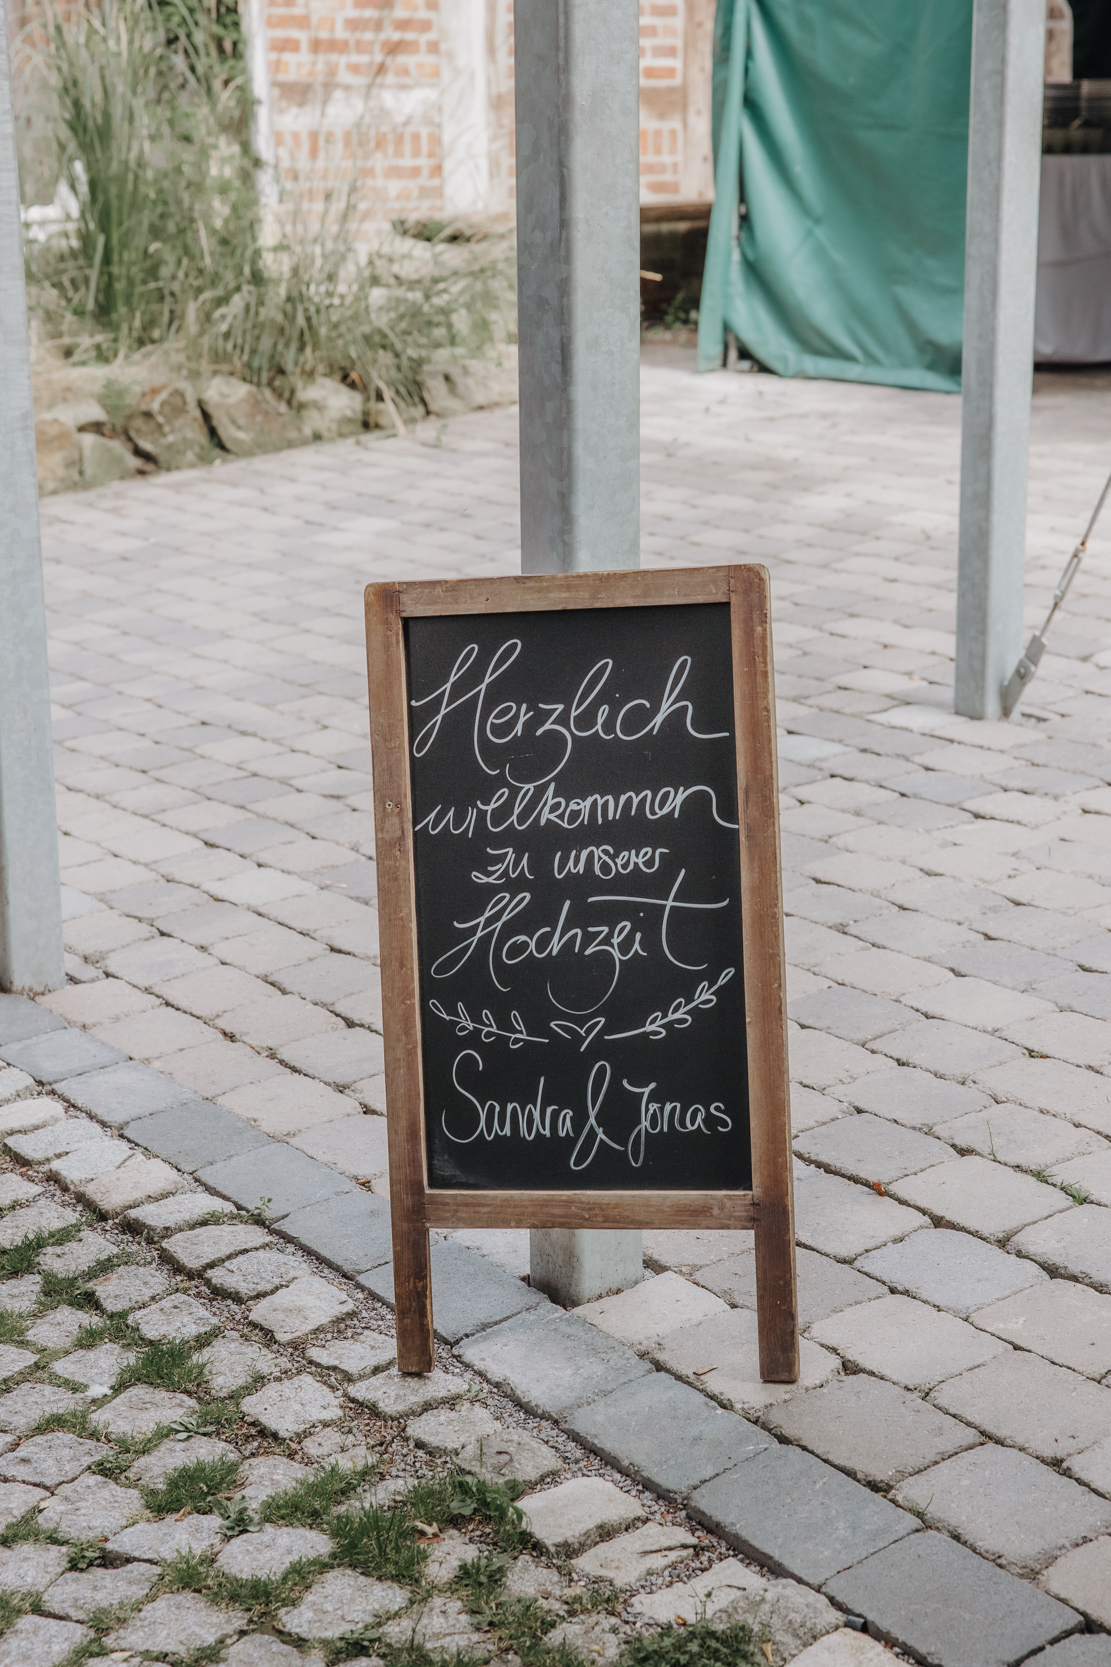 Herzlich
willkommen
zu unserer
Hochzeit
Sandra & Jonas